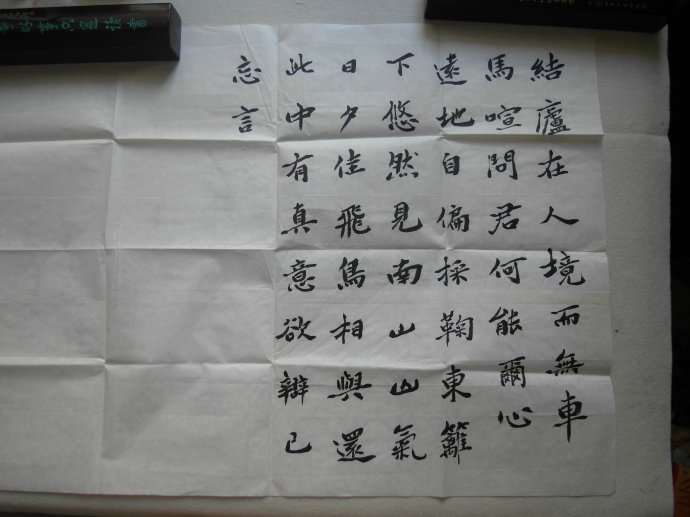 結廬在人境而無車
馬喧問君何能爾心
遠地自偏採鞠東籬
下悠然見南山山氣
日夕佳飛鳥相與還
此中有真意欲辨已
忘言